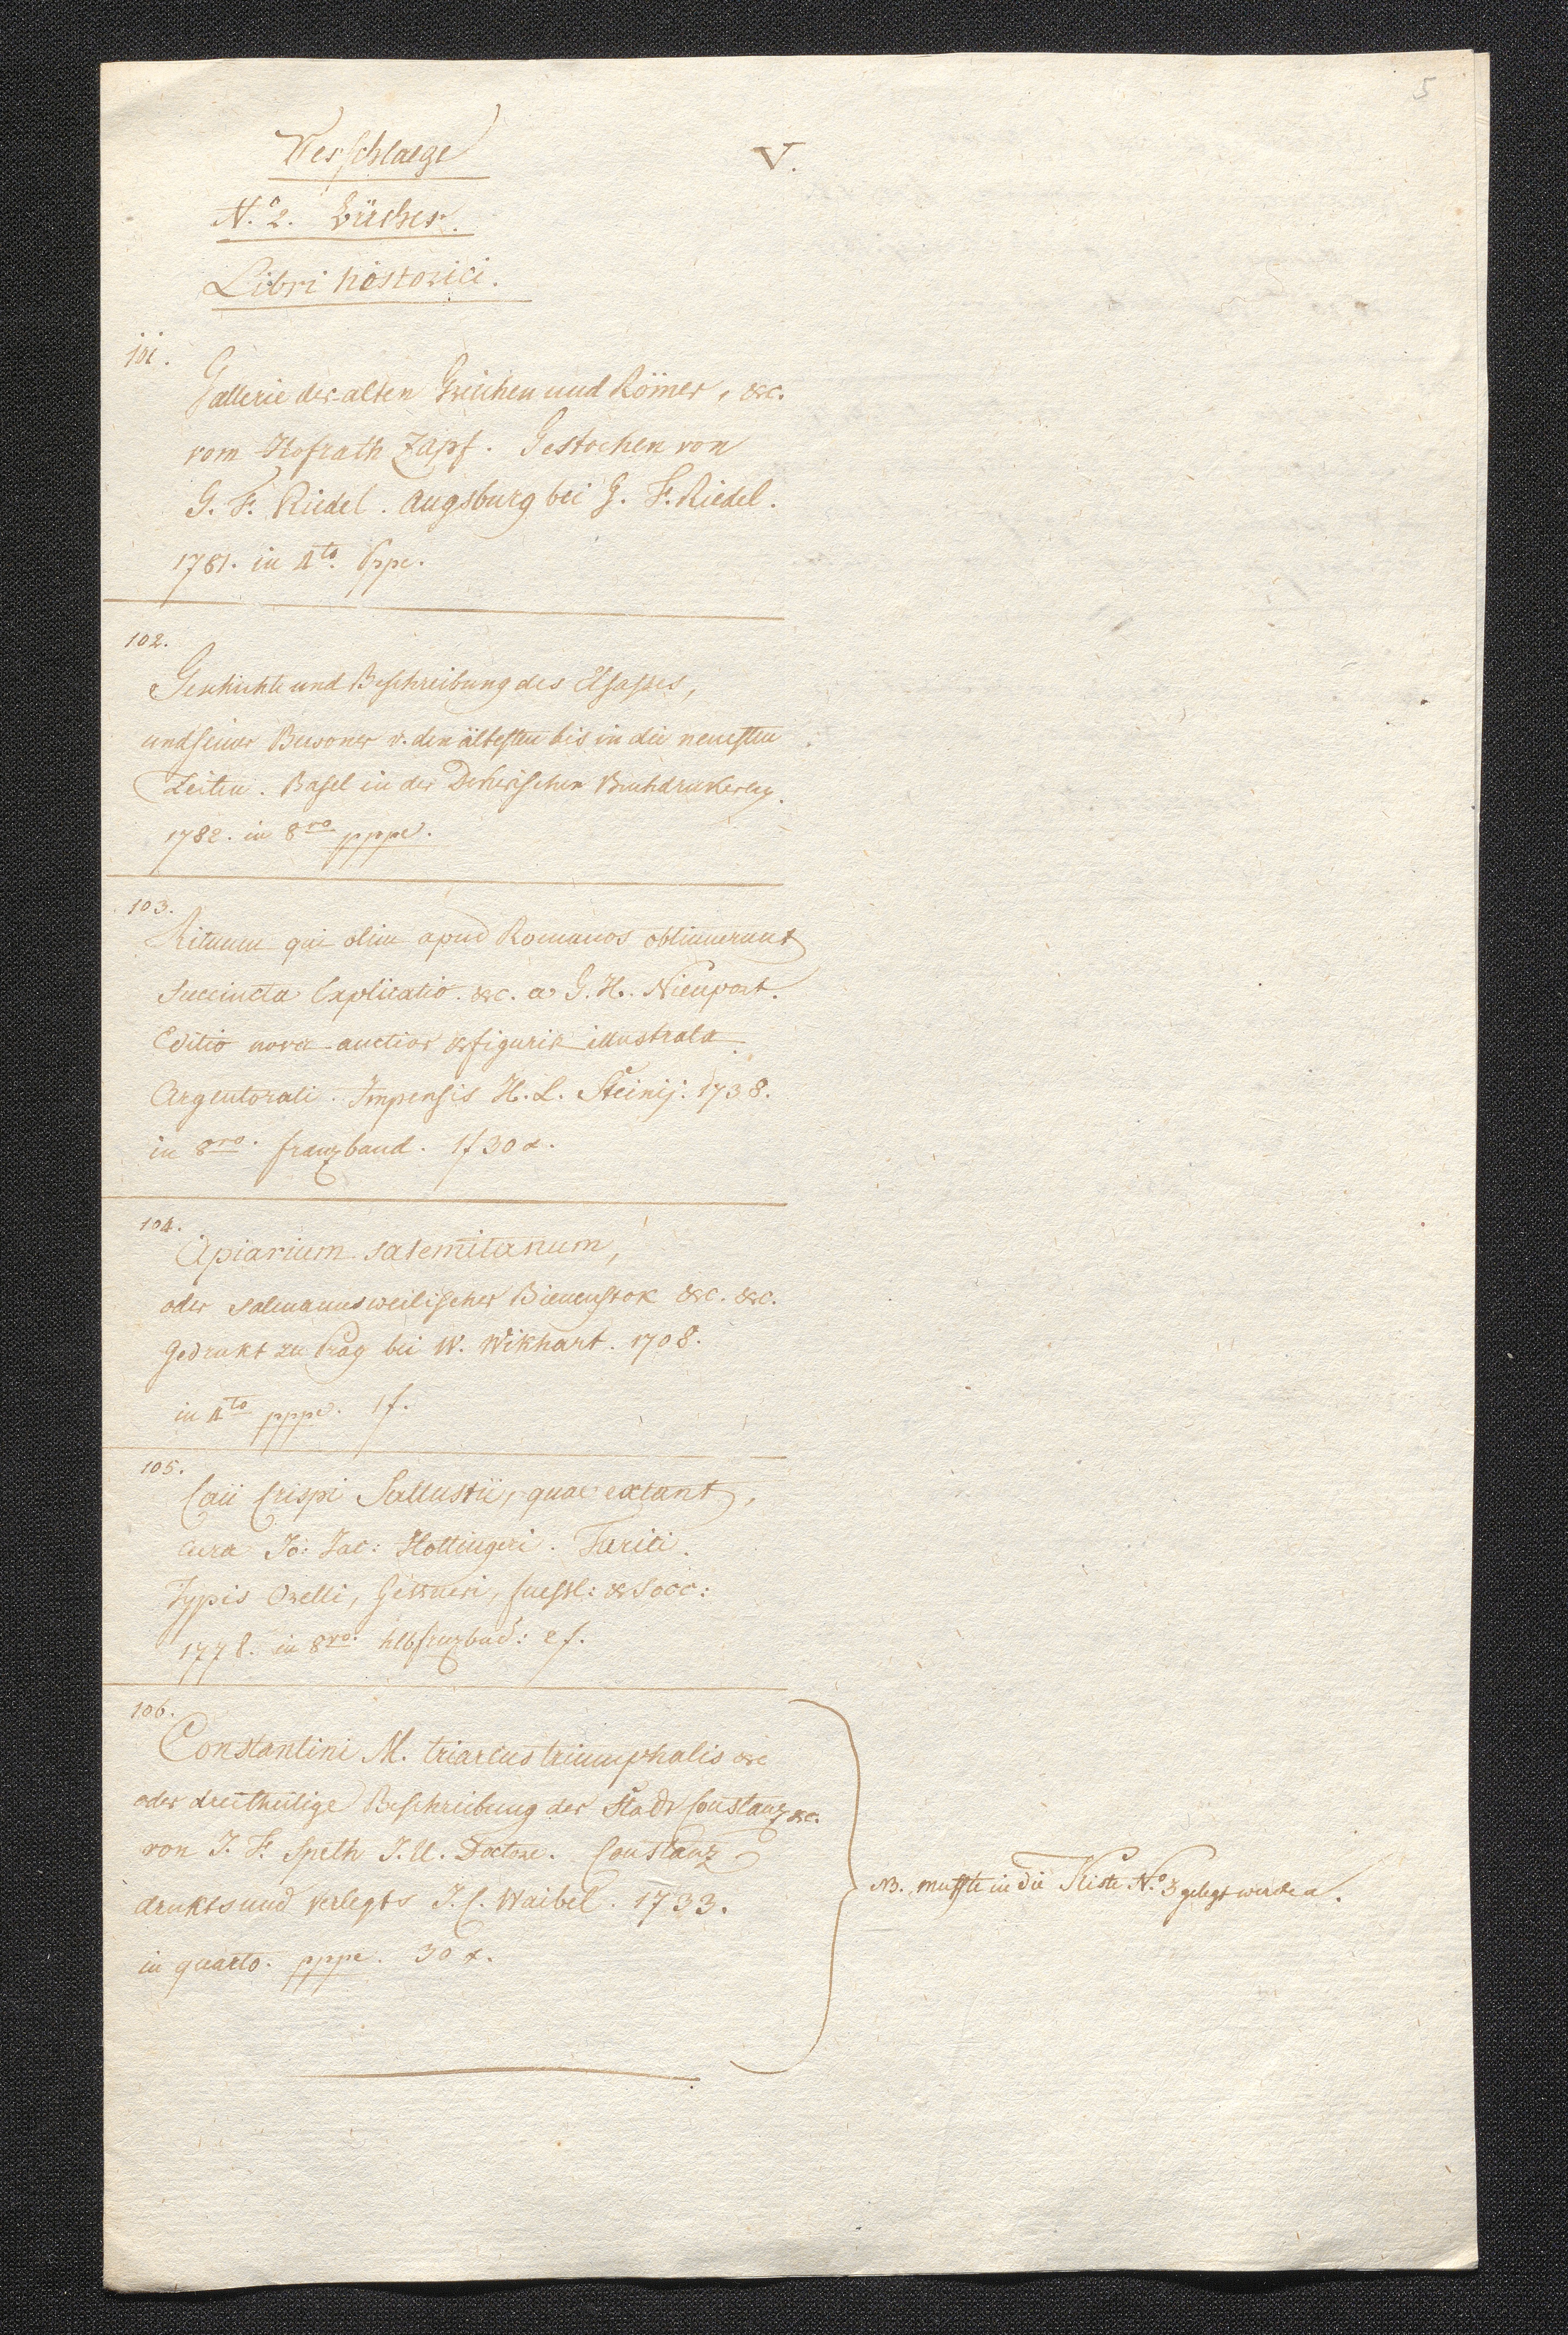 5
Verschlaege
V.
N.º 2. Bücher.
Libri historici.
101.
Gallerie der alten Griechen und Römer, &c.
vom Hofrath Zapf. Gestochen von
G. F. Riedel. Augsburg bei G. F. Riedel.
1781. in 4to. Pppe.
102.
Geschichte und Beschreibung des Elsasses,
und seiner Bewoner v. den ältesten bis in die neuesten
Zeiten. Basel in der Dekerischen Buchdrukerey.
1782. in 8vo pppe.
103.
Rituum qui olim apud Romanos obtinuerunt
succincta Explicatio. &c. a G. H. Nieuport.
Editio nova auctior & figuris illustrata.
Argentorati. Impensis H. L. Steinij. 1738.
in 8vo. franzband. 1f 30x.
104.
Apiarium salemitanum,
oder salmannsweilischer Bienenstok &c. &c.
Gedrukt zu Prag bei W. Wikhart. 1708.
in 4to pppe. 1f.
105.
Caii Crispi Sallustii, quae extant,
cura Jo: Jac: Hottingeri. Turici.
Typis Orelli, Gessneri, fuessl: & Socc:
1778. in 8vo. hlbfrnzbnd: 2f.
106.
Constantini M. triarcus triumphalis &c
oder dreitheilige Beschreibung der Stadt Constanz &c.
von J. F. Speth J. U. Doctore. Constanz
drukts und verlegts J. C. Waibel. 1733.
in quarto. pppe. 30x.
NB. mussste in die Kiste N.º 3 gelegt werden.